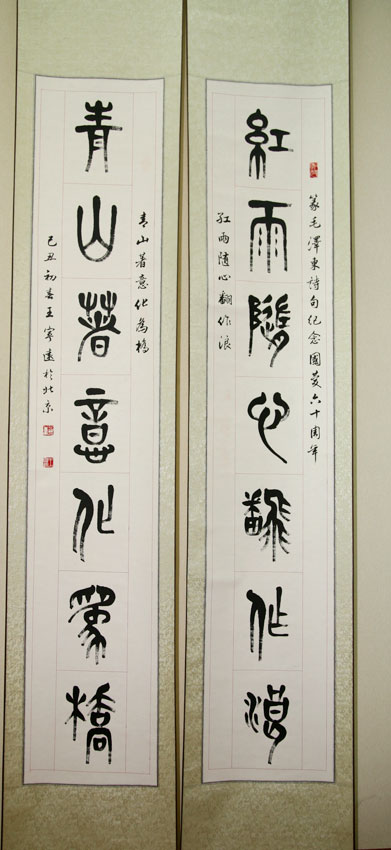 篆毛澤東詩句紀念國慶六十周年
紅雨隨心翻作浪
紅雨隨心翻作浪
青山著意化為橋
青山著意化為橋
己丑初春王寧遠於北京